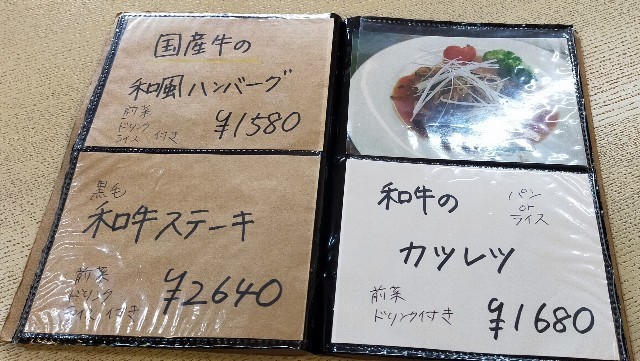 国産牛の
和風ハンバーグ
前菜
ドリンク
ライス 付き
¥1580
黒毛
和牛ステーキ
前菜
ドリンク
ライス付き
¥2640
和牛の
パン
or
ライス
カツレツ
前菜
ドリンク付き
¥1680